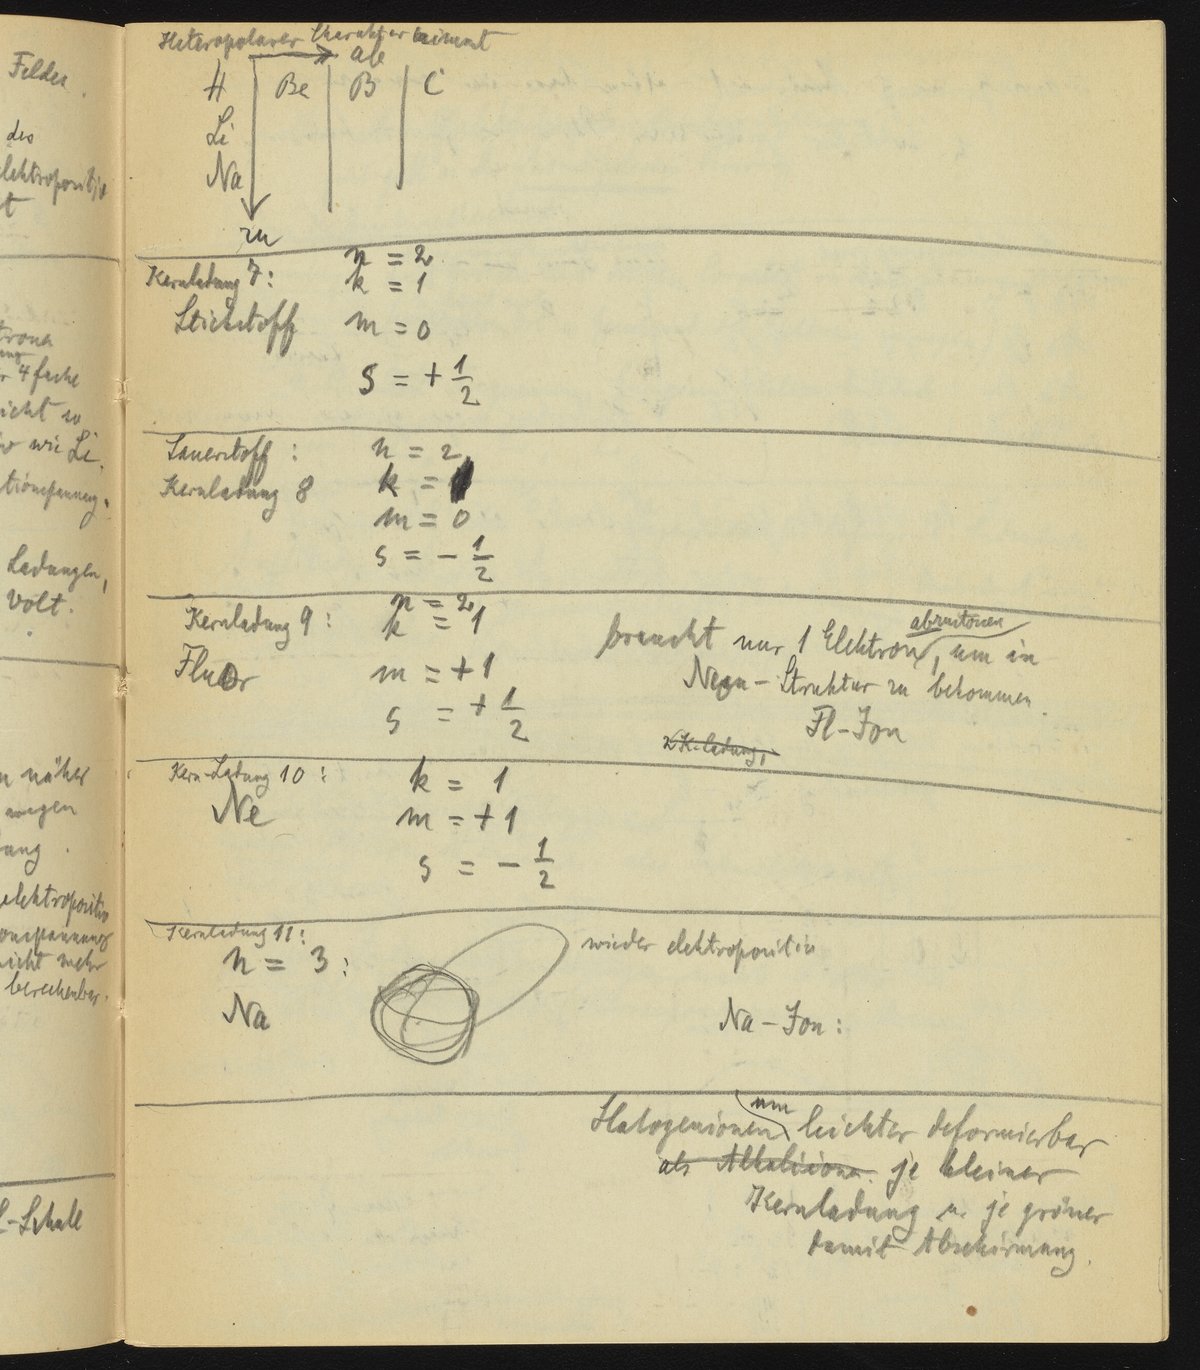 Feldes.
des
elektropositiv
4 fache
nicht so
wie Li.
Ladungen,
Volt.
näher
wegen
elektropositiv
nicht mehr
berechenbar.
L-Schale
Heteropolarer Charakter nimmt
ab
H Be B C
Li
Na
zu
Kernladung 7: n = 2
k = 1
Stickstoff m = 0
s = + 1/2
Sauerstoff: n = 2
Kernladung 8 k =
m = 0
s = - 1/2
Kernladung 9: n = 2
k = 1
Fluor m = +1
s = + 1/2
braucht nur 1 Elektron, um in
Neon-Struktur zu bekommen.
Fl-Jon
Kern-Ladung 10: k = 1
Ne m = +1
s = - 1/2
Kernladung 11:
n = 3:
wieder elektropositiv
Na Na-Jon:
Halogenionen um leichter deformierbar
als Alkaliionen je kleiner
Kernladung u. je grösser
damit Abschirmung.